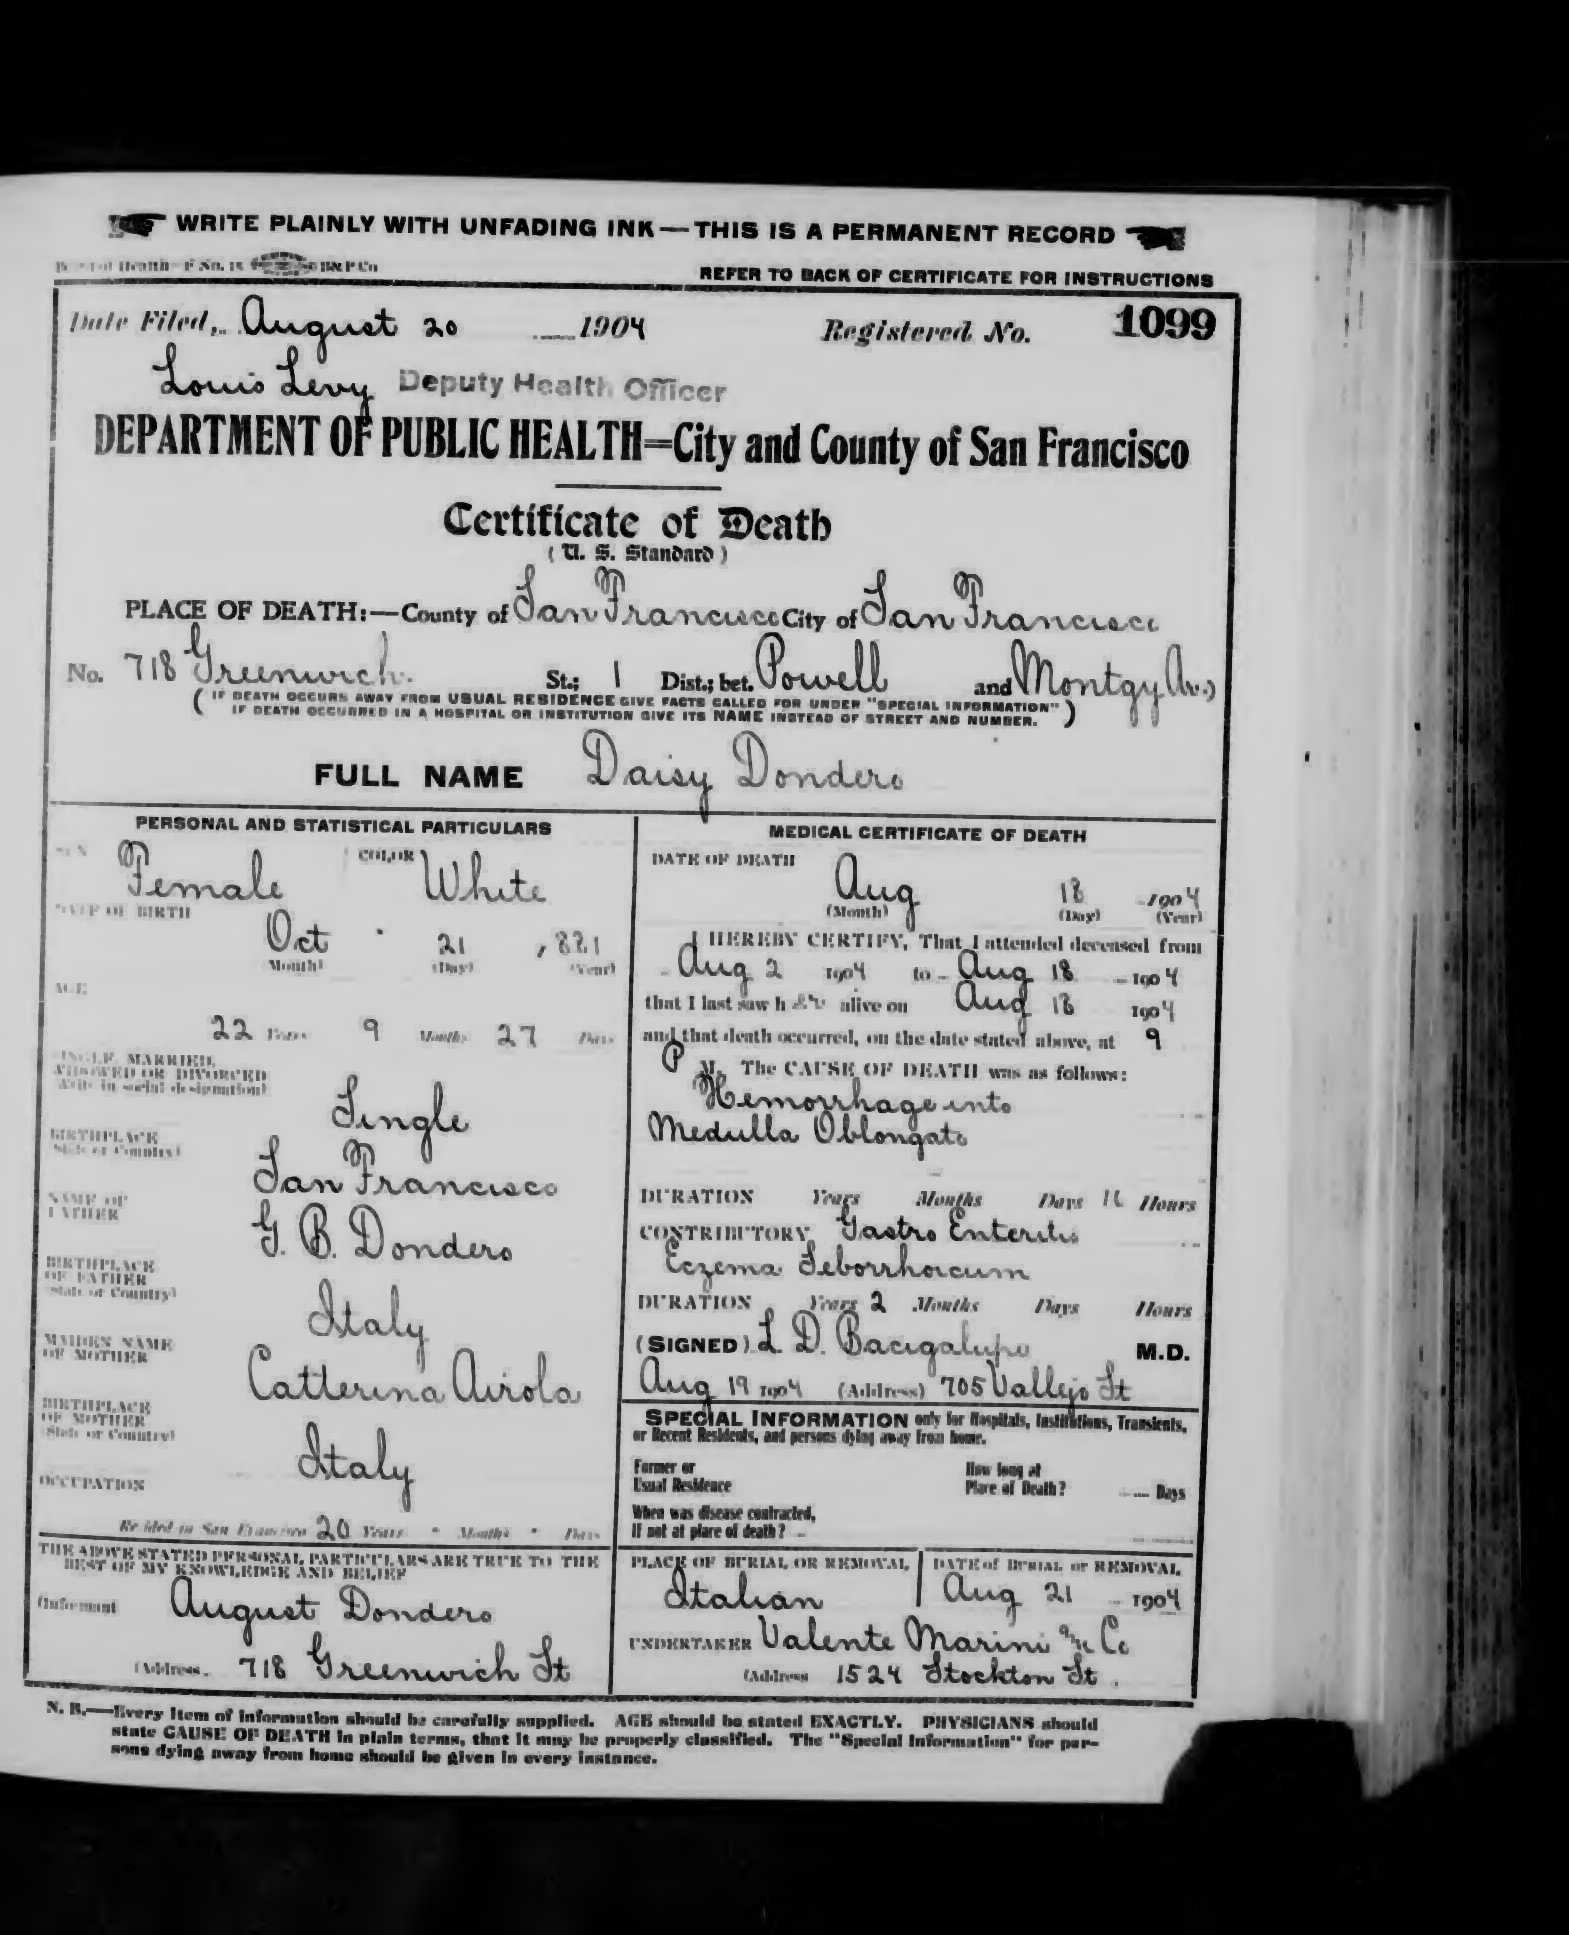 WRITE PLAINLY WITH UNFADING INK—THIS IS A PERMANENT RECORD
REFER TO BACK OF CERTIFICATE FOR INSTRUCTIONS
Date Filed, August 20 1904 Registered No. 1099
Louis Levy Deputy Health Officer
DEPARTMENT OF PUBLIC HEALTH=City and County of San Francisco
Certificate of Death
(U. S. Standard)
PLACE OF DEATH:—County of San Francisco City of San Francisco
No. 718 Greenwich St.; 1 Dist.; bet. Powell and Montgy Av.)
( IF DEATH OCCURS AWAY FROM USUAL RESIDENCE GIVE FACTS CALLED FOR UNDER "SPECIAL INFORMATION"
IF DEATH OCCURRED IN A HOSPITAL OR INSTITUTION GIVE ITS NAME INSTEAD OF STREET AND NUMBER. )
FULL NAME Daisy Dondero
PERSONAL AND STATISTICAL PARTICULARS
SEX Female COLOR White
DATE OF BIRTH
Oct 21 , 881
(Month) (Day) (Year)
AGE
22 Years 9 Months 27 Days
SINGLE, MARRIED,
WIDOWED OR DIVORCED
(Write in social designation)
Single
BIRTHPLACE
(State or Country)
San Francisco
NAME OF
FATHER
G. B. Dondero
BIRTHPLACE
OF FATHER
(State or Country)
Italy
MAIDEN NAME
OF MOTHER
Catterina Airola
BIRTHPLACE
OF MOTHER
(State or Country)
Italy
OCCUPATION
Resided in San Francisco 20 Years " Months " Days
THE ABOVE STATED PERSONAL PARTICULARS ARE TRUE TO THE
BEST OF MY KNOWLEDGE AND BELIEF
(Informant August Dondero
(Address 718 Greenwich St
MEDICAL CERTIFICATE OF DEATH
DATE OF DEATH
Aug 18 1904
(Month) (Day) (Year)
I HEREBY CERTIFY, That I attended deceased from
Aug 2 1904 to Aug 18 1904
that I last saw her alive on Aug 18 1904
and that death occurred, on the date stated above, at 9
P M. The CAUSE OF DEATH was as follows:
Hemorrhage into
Medulla Oblongata
DURATION Years Months Days Hours
CONTRIBUTORY Gastro Enteritis
Eczema Seborrhoicum
DURATION Years 2 Months Days Hours
(SIGNED) L. D. Bacigalupi M.D.
Aug 19 1904 (Address) 705 Vallejo St
SPECIAL INFORMATION only for Hospitals, Institutions, Transients,
or Recent Residents, and persons dying away from home.
Former or
Usual Residence
How long at
Place of Death? Days
When was disease contracted,
If not at place of death?
PLACE OF BURIAL OR REMOVAL
Italian
DATE of BURIAL or REMOVAL
Aug 21 1904
UNDERTAKER Valente Marini & Co
(Address 1524 Stockton St.
N. B.—Every item of information should be carefully supplied. AGE should be stated EXACTLY. PHYSICIANS should
state CAUSE OF DEATH in plain terms, that it may be properly classified. The "Special Information" for per-
sons dying away from home should be given in every instance.